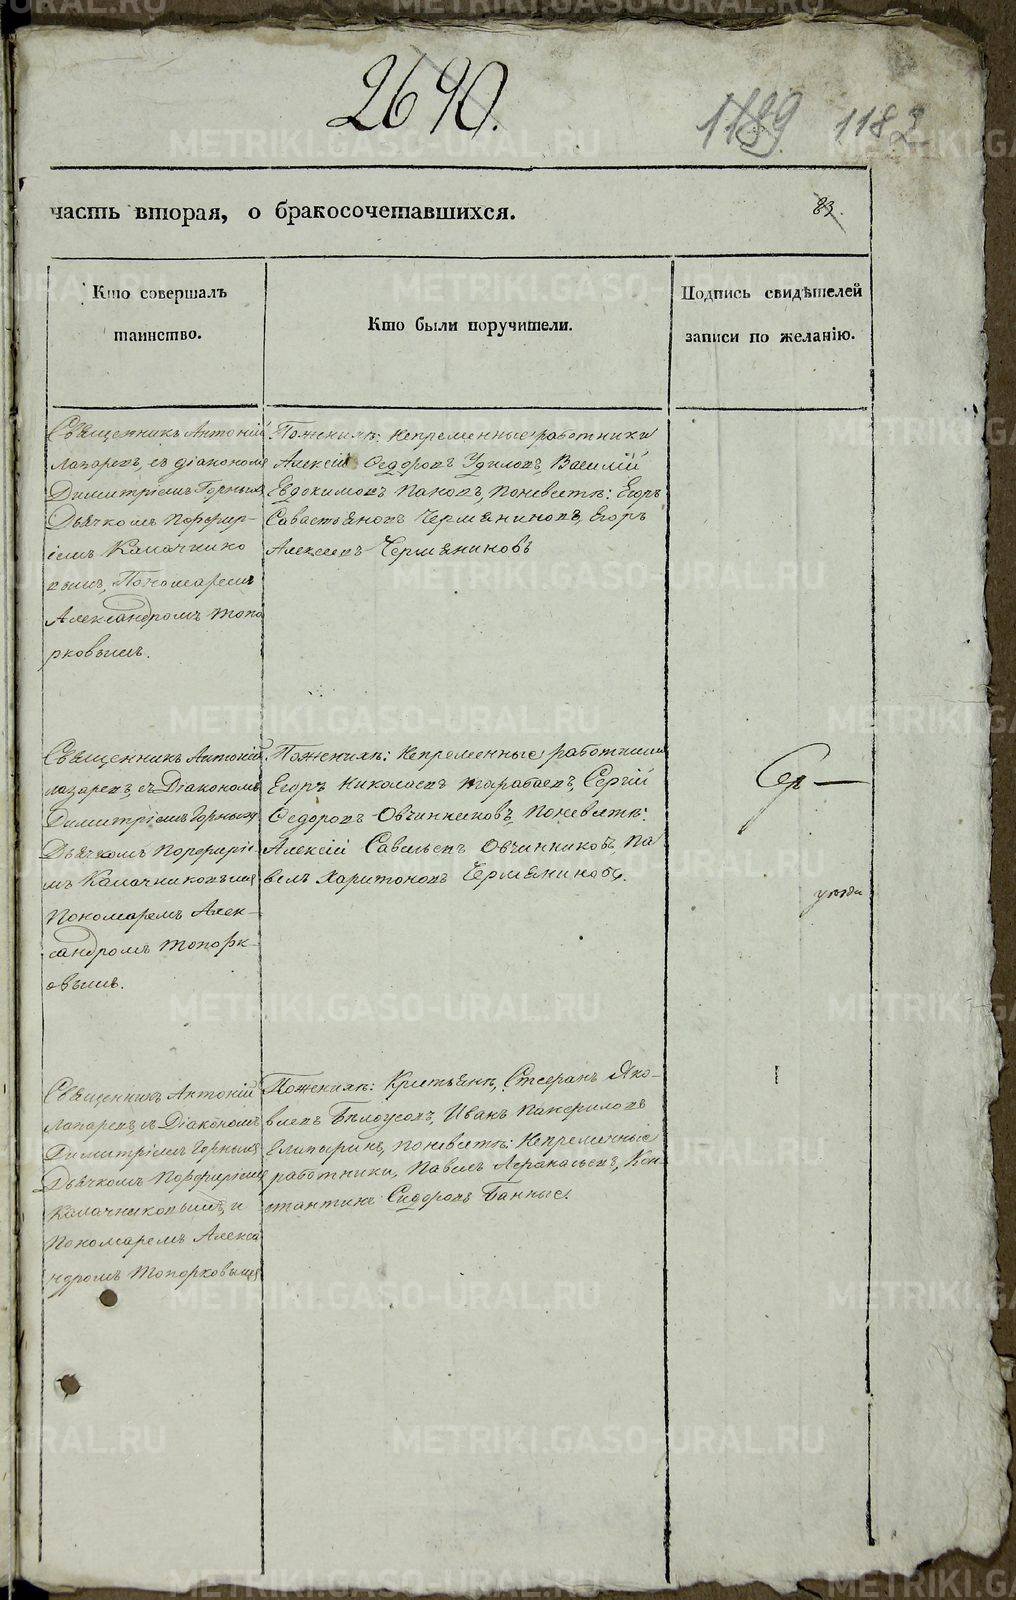 2690.
1189 1182
часть вторая, о бракосочетавшихся.
83.
Кто совершалъ
таинство.
Кто были поручители.
Подпись свидѣтелей
записи по желанію.
Священникъ Антоній
Лазаревъ, съ діакономъ
Димитріемъ Горныхъ
Дьячкомъ Порфир-
іемъ Калачнико
вымъ, Пономаремъ
Александромъ Топо
рковымъ.
Поженихѣ: Непременные работники
Алексій Федоровъ Удиловъ, Василій
Евдокимовъ Пановъ, Поневѣстѣ: Егоръ
Савастьяновъ Чермяниновъ, Егоръ
Алексеевъ Чермяниновъ
Священникъ Антоній
Лазаревъ, съ Діакономъ
Димитріемъ Горныхъ
Дьячкомъ Порфирі-
мъ Калачниковымъ
Пономаремъ Алек-
сандромъ Топорк-
овымъ.
Поженихѣ: Непременные работники
Егоръ Николаевъ Тарабаевъ, Сергій
Федоровъ Овчинниковъ, Поневѣстѣ:
Алексій Савельевъ Овчинниковъ, Па
велъ Харитоновъ Чермяниновъ.
Священникъ Антоній
Лазаревъ, съ Діакономъ
Димитріемъ Горныхъ
Дьячкомъ Порфиріемъ
Калачниковымъ, и
Пономаремъ Алекса
ндромъ Топорковымъ
Поженихѣ: Критьянѣ, Стефанъ Яко-
влевъ Бѣлоусовъ, Иванъ Панфиловъ
Поневѣстѣ: Непременные
работники, Павелъ Афанасьевъ, Кон
стантинъ Сидоровъ Банные.
METRIKI.GASO-URAL.RU